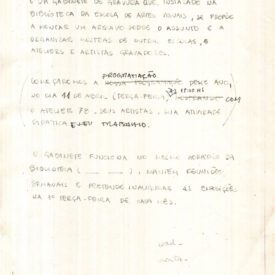 É UM GABINETE DE GRAVURA QUE, INSTALADO NA
BIBLIOTECA DA ESCOLA DE ARTES VISUAIS, SE PROPÕE
A MONTAR UM ARQUIVO SOBRE O ASSUNTO E A
ORGANIZAR MOSTRAS DE OUTRAS ESCOLAS, E
ATELIERS E ARTISTAS GRAVADORES.
PROGRAMAÇÃO
COMEÇAREMOS A NOSSA DESTE ANO,
NO DIA 11 DE ABRIL (TERÇA-FEIRA), MOSTRANDO COM
O ATELIER 78, SEUS ARTISTAS, SUA ATIVIDADE
DIDÁTICA E SEU TRABALHO.
O GABINETE FUNCIONA NO MESMO HORÁRIO DA
BIBLIOTECA ( ), MANTÉM REUNIÕES
SEMANAIS E PRETENDE INAUGURAR AS EXPOSIÇÕES
NA 1ª TERÇA-FEIRA DE CADA MÊS.